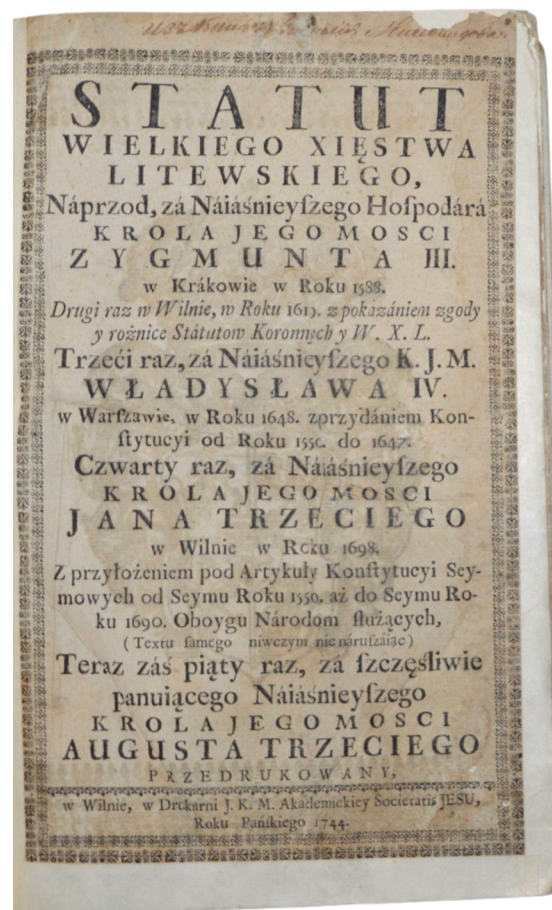 STATUT
WIELKIEGO XIĘSTWA
LITEWSKIEGO,
Náprzod, zá Náiáśnieyſzego Hoſpodárá
KROLA JEGOMOSCI
ZYGMUNTA III.
w Krákowie w Roku 1588.
Drugi raz w Wilnie, w Roku 1619. z pokazániem zgody
y rożnice Státutow Koronnych y W. X. L.
Trzeći raz, zá Náiáśnieyſzego K. J. M.
WŁADYSŁAWA IV.
w Warſzawie, w Roku 1648. zprzydániem Kon-
ſtytucyi od Roku 1550. do 1647.
Czwarty raz, zá Náiáśnieyſzego
KROLA JEGO MOSCI
JANA TRZECIEGO
w Wilnie w Roku 1698.
Z przyłożeniem pod Artykuły Konſtytucyi Sey-
mowych od Seymu Roku 1550. aż do Seymu Ro-
ku 1690. Oboygu Národom ſłużących,
(Textu ſamego niwczym nie náruſzáiąc)
Teraz záś piąty raz, zá ſzczęśliwie
panuiącego Náiáśnieyſzego
KROLA JEGO MOSCI
AUGUSTA TRZECIEGO
PRZEDRUKOWANY,
w Wilnie, w Drukarni J. K. M. Akademickiey Societatis JESU,
Roku Pańſkiego 1744.